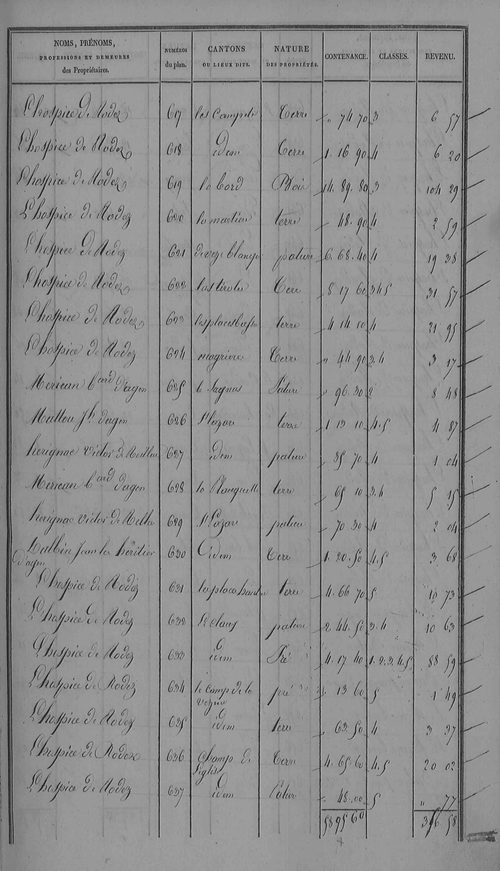 NOMS, PRÉNOMS, PROFESSIONS ET DEMEURES des Propriétaires. NUMÉROS du plan. CANTONS OU LIEUX DITS. NATURE DES PROPRIÉTÉS. CONTENANCE. CLASSES. REVENU.
L'hospice de Rodez 617 Terre " 74 70 3 6 57
L'hospice de Rodez 618 idem Terre 1 16 90 4 6 20
L'hospice de Rodez 619 la bord Bois 14 89 80 3 104 29
L'hospice de Rodez 620 terre " 48 90 4 2 59
L'hospice de Rodez 621 pature 6 68 40 4 19 38
L'hospice de Rodez 622 Terre 8 17 60 3 4 5 31 57
L'hospice de Rodez 623 terre 4 14 10 4 21 95
L'hospice de Rodez 624 magriere Terre " 44 90 3.4 3 17
Merican b.ard d'agen 625 le Sagnas Pature " 96 30 2 8 48
d'agen 626 St Lazare terre 1 13 10 4.5 4 87
Victor de 627 idem pature " 35 70 4 1 04
Merican b.ard d'agen 628 la Planquette terre " 65 10 3.4 5 15
Victor de 629 St Lazare pature " 70 30 4 2 04
Jean les héritiers d'agen 630 idem Terre 1 20 50 4.5 3 68
L'hospice de Rodez 631 la place haute terre 4 66 70 5 10 73
L'hospice de Rodez 632 le claus pature 2 44 50 3.4 10 63
L'hospice de Rodez 633 idem Pré 4 17 40 1.2.3.4.5 88 59
L'hospice de Rodez 634 le camp de la pré " 13 60 5 1 49
L'hospice de Rodez 635 idem terre " 63 50 4 3 37
L'hospice de Rodez 636 champ de l'église Terre 4 65 60 4.5 20 02
L'hospice de Rodez 637 idem Pature " 48 00 5 " 77
58 95 60 356 58